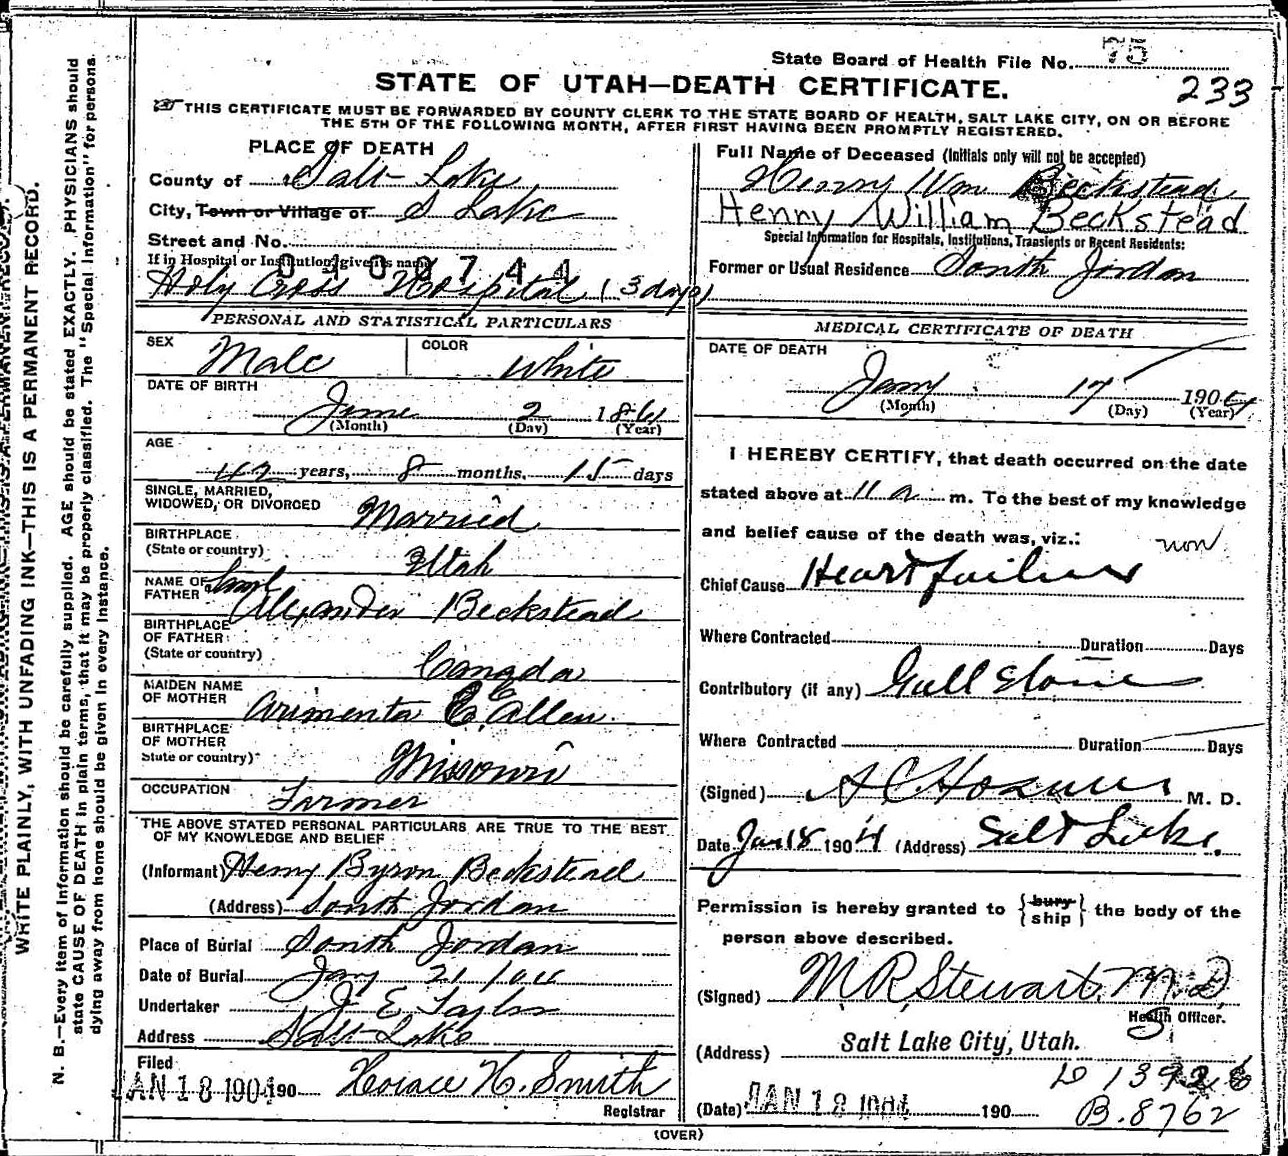 State Board of Health File No. 75
233
STATE OF UTAH—DEATH CERTIFICATE.
THIS CERTIFICATE MUST BE FORWARDED BY COUNTY CLERK TO THE STATE BOARD OF HEALTH, SALT LAKE CITY, ON OR BEFORE
THE 5TH OF THE FOLLOWING MONTH, AFTER FIRST HAVING BEEN PROMPTLY REGISTERED.
WRITE PLAINLY, WITH UNFADING INK—THIS IS A PERMANENT RECORD.
N. B.—Every item of information should be carefully supplied. AGE should be stated EXACTLY. PHYSICIANS should
state CAUSE OF DEATH in plain terms, that it may be properly classified. The "Special Information" for persons
dying away from home should be given in every instance.
PLACE OF DEATH
County of Salt Lake
City, Town or Village of S Lake
Street and No.
If in Hospital or Institution, give its name
0400744
Holy Cross Hospital (3 days)
PERSONAL AND STATISTICAL PARTICULARS
SEX Male COLOR White
DATE OF BIRTH
June 2 1861
(Month) (Day) (Year)
AGE
42 years, 8 months, 15 days
SINGLE, MARRIED,
WIDOWED, OR DIVORCED Married
BIRTHPLACE
(State or country) Utah
NAME OF
FATHER Alexander Beckstead
BIRTHPLACE
OF FATHER
(State or country) Canada
MAIDEN NAME
OF MOTHER Arimenta E. Allen
BIRTHPLACE
OF MOTHER
State or country) Missouri
OCCUPATION Farmer
THE ABOVE STATED PERSONAL PARTICULARS ARE TRUE TO THE BEST
OF MY KNOWLEDGE AND BELIEF
(Informant) Henry Byron Beckstead
(Address) South Jordan
Place of Burial South Jordan
Date of Burial Jany 21 1904
Undertaker J. E. Taylor
Address Salt Lake
Filed
JAN 18 1904 190 Horace H. Smith
Registrar
Full Name of Deceased (Initials only will not be accepted)
Henry Wm Beckstead
Henry William Beckstead
Special Information for Hospitals, Institutions, Transients or Recent Residents:
Former or Usual Residence South Jordan
MEDICAL CERTIFICATE OF DEATH
DATE OF DEATH
Jany 17 1904
(Month) (Day) (Year)
I HEREBY CERTIFY, that death occurred on the date
stated above at 11 a m. To the best of my knowledge
and belief cause of the death was, viz.:
Chief Cause Heart failure
Where Contracted Duration Days
Contributory (if any) Gall Stones
Where Contracted Duration Days
(Signed) M. D.
Date Jan 18 1904 (Address) Salt Lake.
Permission is hereby granted to {bury ship} the body of the
person above described.
(Signed) M R Stewart, M.D.
Health Officer.
(Address) Salt Lake City, Utah.
B. 8762
(Date) JAN 18 1904 190
(OVER)